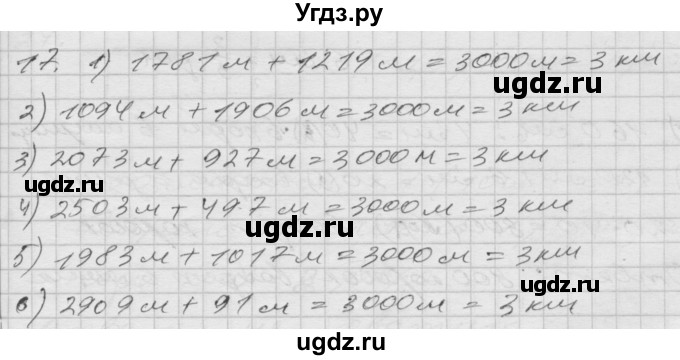 Угдз.ру
17. 1) 1781 м + 1219 м = 3000 м = 3 км
2) 1094 м + 1906 м = 3000 м = 3 км
3) 2073 м + 927 м = 3000 м = 3 км
4) 2503 м + 497 м = 3000 м = 3 км
5) 1983 м + 1017 м = 3000 м = 3 км
6) 2909 м + 91 м = 3000 м = 3 км
ugdz.ru
ugdz.ru
ugdz.ru
ugdz.ru
ugdz.ru
ugdz.ru
ugdz.ru
ugdz.ru
ugdz.ru